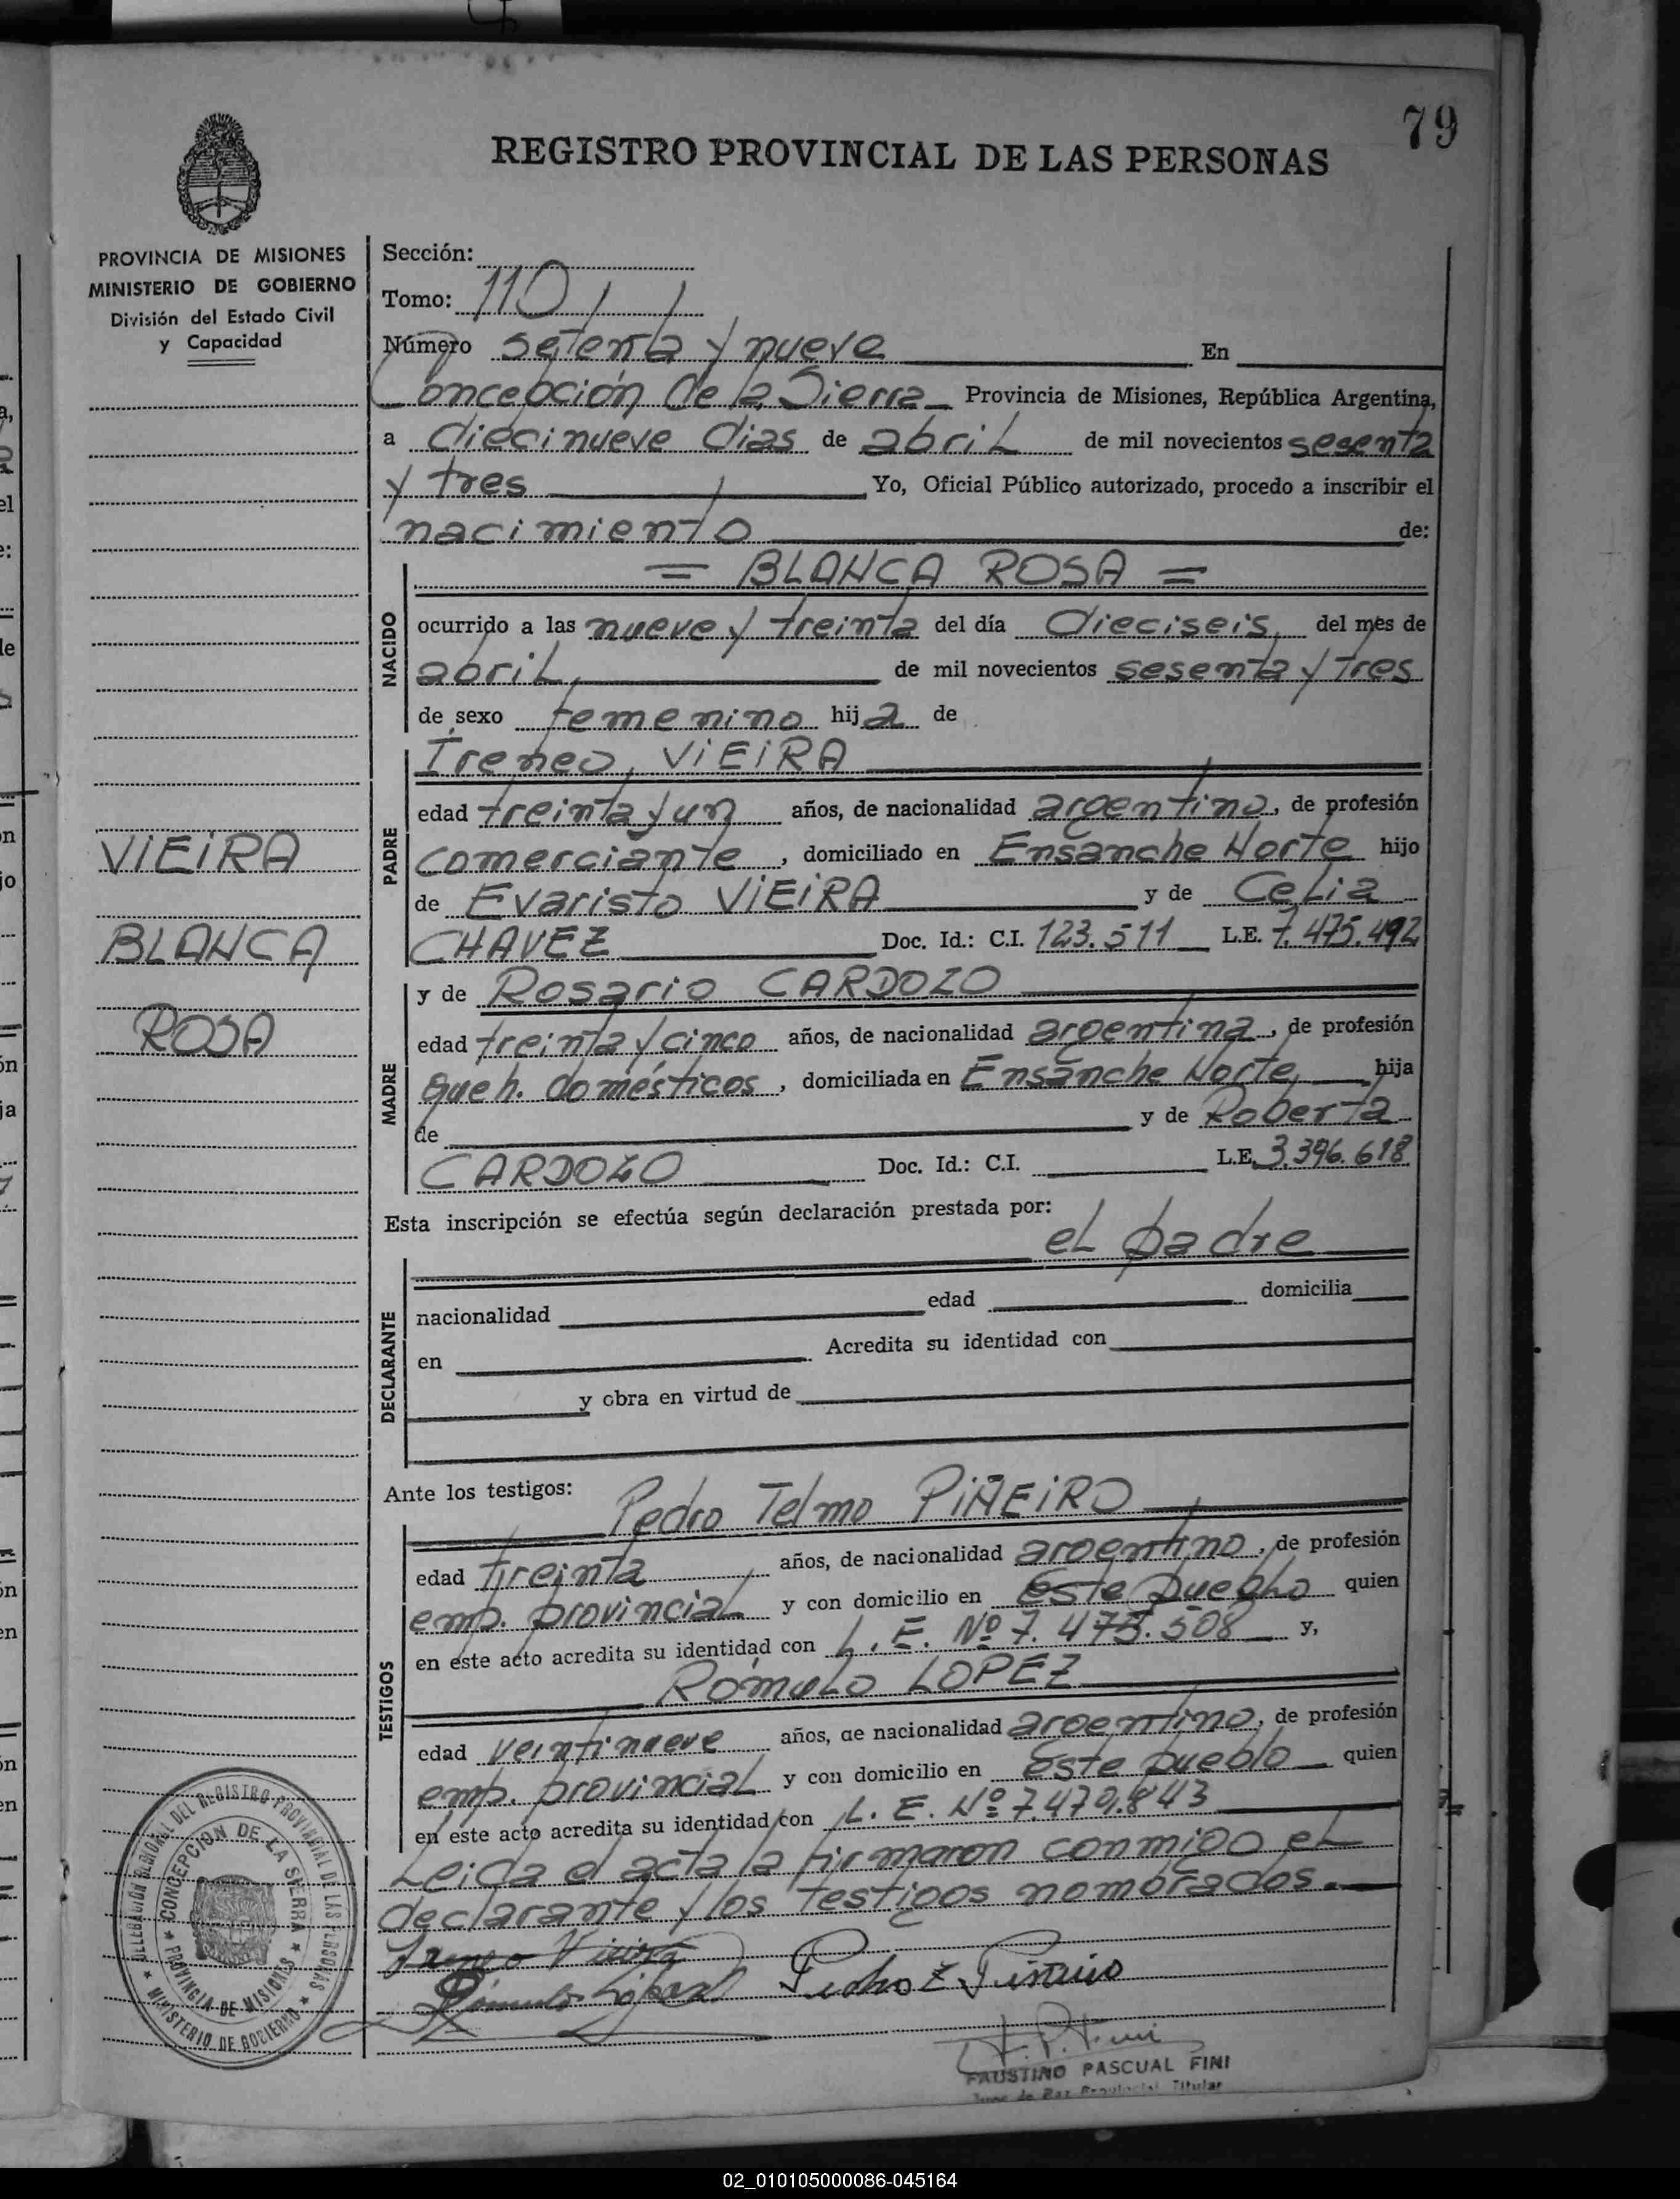 79
REGISTRO PROVINCIAL DE LAS PERSONAS
PROVINCIA DE MISIONES
MINISTERIO DE GOBIERNO
División del Estado Civil
y Capacidad
VIEIRA
BLANCA
ROSA
Sección:
Tomo: 110
Número setenta y nueve En
Concepción de la Sierra Provincia de Misiones, República Argentina,
a diecinueve días de abril de mil novecientos sesenta
y tres Yo, Oficial Público autorizado, procedo a inscribir el
nacimiento de:
= BLANCA ROSA =
NACIDO
ocurrido a las nueve y treinta del día dieciseis, del mes de
abril, de mil novecientos sesenta y tres
de sexo femenino hija de
PADRE
Ireneo, VIEIRA
edad treinta y un años, de nacionalidad argentino, de profesión
comerciante, domiciliado en Ensanche Norte hijo
de Evaristo VIEIRA y de Celia
CHAVEZ Doc. Id.: C.I. 123.511 L.E. 7.475.492
MADRE
y de Rosario CARDOZO
edad treinta y cinco años, de nacionalidad argentina, de profesión
queh. domésticos, domiciliada en Ensanche Norte, hija
de y de Roberta
CARDOZO Doc. Id.: C.I. L.E. 3.396.618
Esta inscripción se efectúa según declaración prestada por:
el padre
DECLARANTE
nacionalidad edad domicilia
en Acredita su identidad con
y obra en virtud de
Ante los testigos:
Pedro Telmo PIÑEIRO
TESTIGOS
edad treinta años, de nacionalidad argentino, de profesión
emp. provincial y con domicilio en Este pueblo quien
en este acto acredita su identidad con L. E. Nº 7.475.508 y,
Rómulo LOPEZ
edad veintinueve años, de nacionalidad argentino, de profesión
emp. provincial y con domicilio en este pueblo quien
en este acto acredita su identidad con L. E. Nº 7.479.843
Leida el acta la firmaron conmigo el
declarante y los testigos nombrados.
Ireneo Vieira
Rómulo López
DELEGACIÓN REGIONAL DEL REGISTRO PROVINCIAL DE LAS PERSONAS
MINISTERIO DE GOBIERNO
CONCEPCION DE LA SIERRA
PROVINCIA DE MISIONES
FAUSTINO PASCUAL FINI
Juez de Paz Provincial Titular
02_010105000086-045164